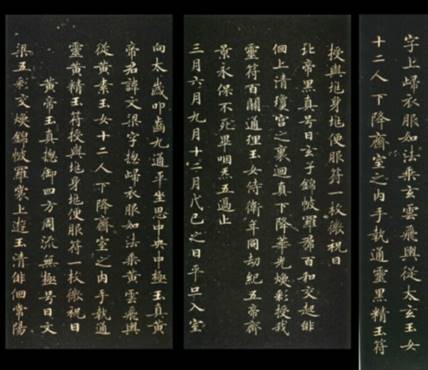 字上歸衣服如法乘玄雲飛輿從太玄玉女
十二人下降齋室之內手執通靈黑精玉符
授與兆身兆便服符一枚微祝曰
北帝黑真号曰玄子錦帔羅裙百和交起俳
佪上清瓊宮之裏回真下降華光煥彩授我
靈符百關通理玉女侍衛年同劫紀五帝齊
景永保不死畢咽炁五過止
三月六月九月十二月戊己之日平旦入室
向太歲叩齒九通平坐思中央中極玉真黃
帝君諱文梁字揔歸衣服如法乘黃雲飛輿
從黃素玉女十二人下降齋室之內手執通
靈黃精玉符授與兆身兆便服符一枚微祝曰
黃帝玉真揔御四方周流無極号曰文
梁五彩交煥錦帔羅裳上遊玉清俳佪常陽